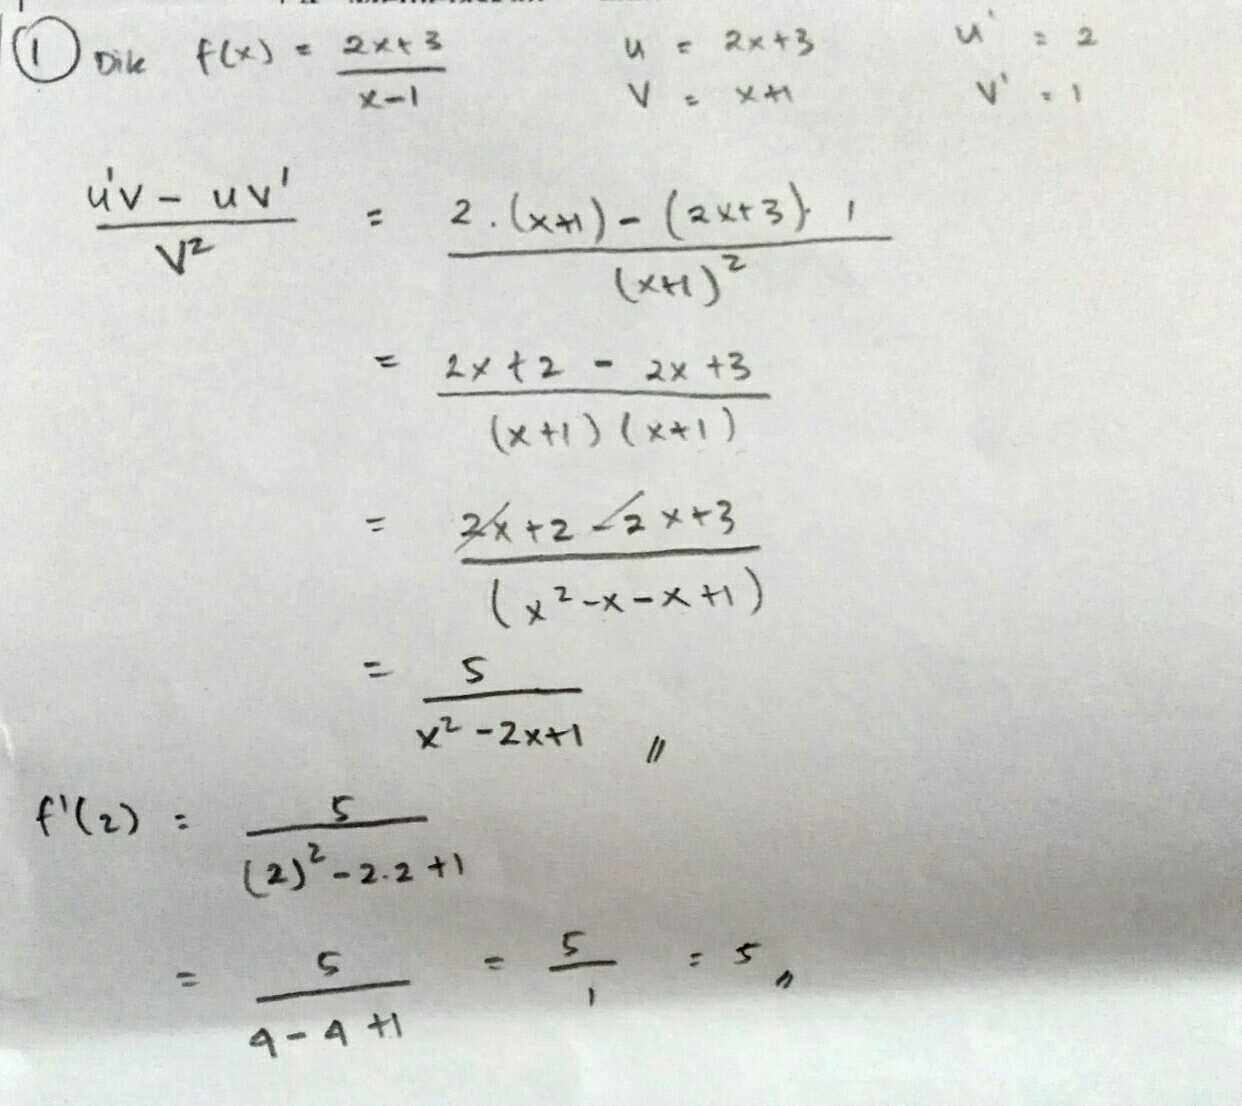 ① Dik f(x) = 2x+3 / x-1 u = 2x+3 u' = 2
v = x+1 v' = 1
u'v - uv' / v² = 2.(x+1) - (2x+3). 1 / (x+1)²
= 2x + 2 - 2x + 3 / (x+1) (x+1)
= 2x + 2 - 2x + 3 / (x² - x - x + 1)
= 5 / x² - 2x + 1 //
f'(2) = 5 / (2)² - 2.2 + 1
= 5 / 4 - 4 + 1 = 5 / 1 = 5 //